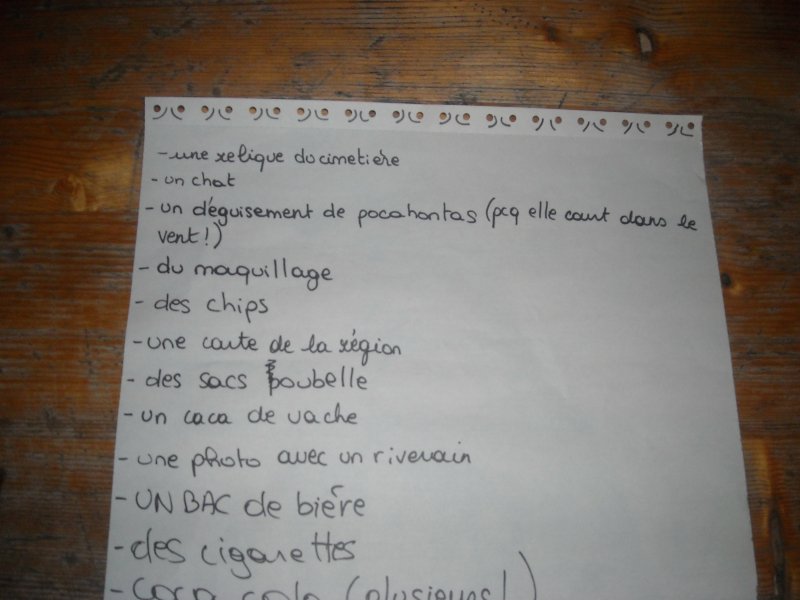 - une relique du cimetière
- un chat
- un déguisement de pocahontas (pcq elle court dans le
vent!)
- du maquillage
- des chips
- une carte de la région
- des sacs poubelle
- un caca de vache
- une photo avec un riverain
- UN BAC de bière
- des cigarettes
- coca cola (plusieurs!)